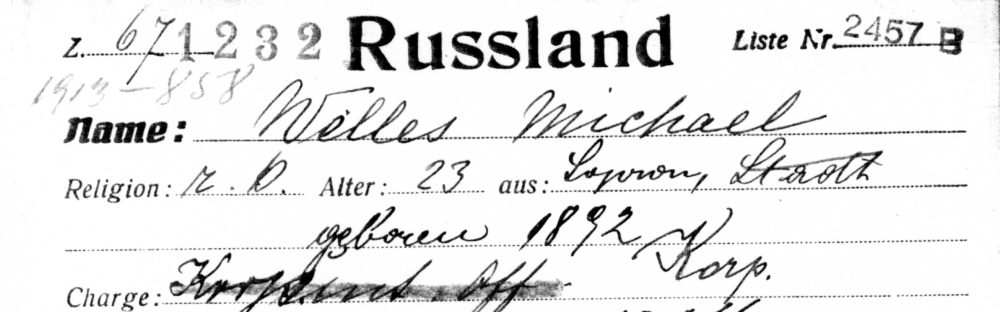 Z. 67 1232 Russland Liste Nr. 2457 B
1913-858
Name: Welles Michael
Religion: r. k. Alter: 23 aus: Sopron, Stadt
geboren 1892 Korp.
Charge: